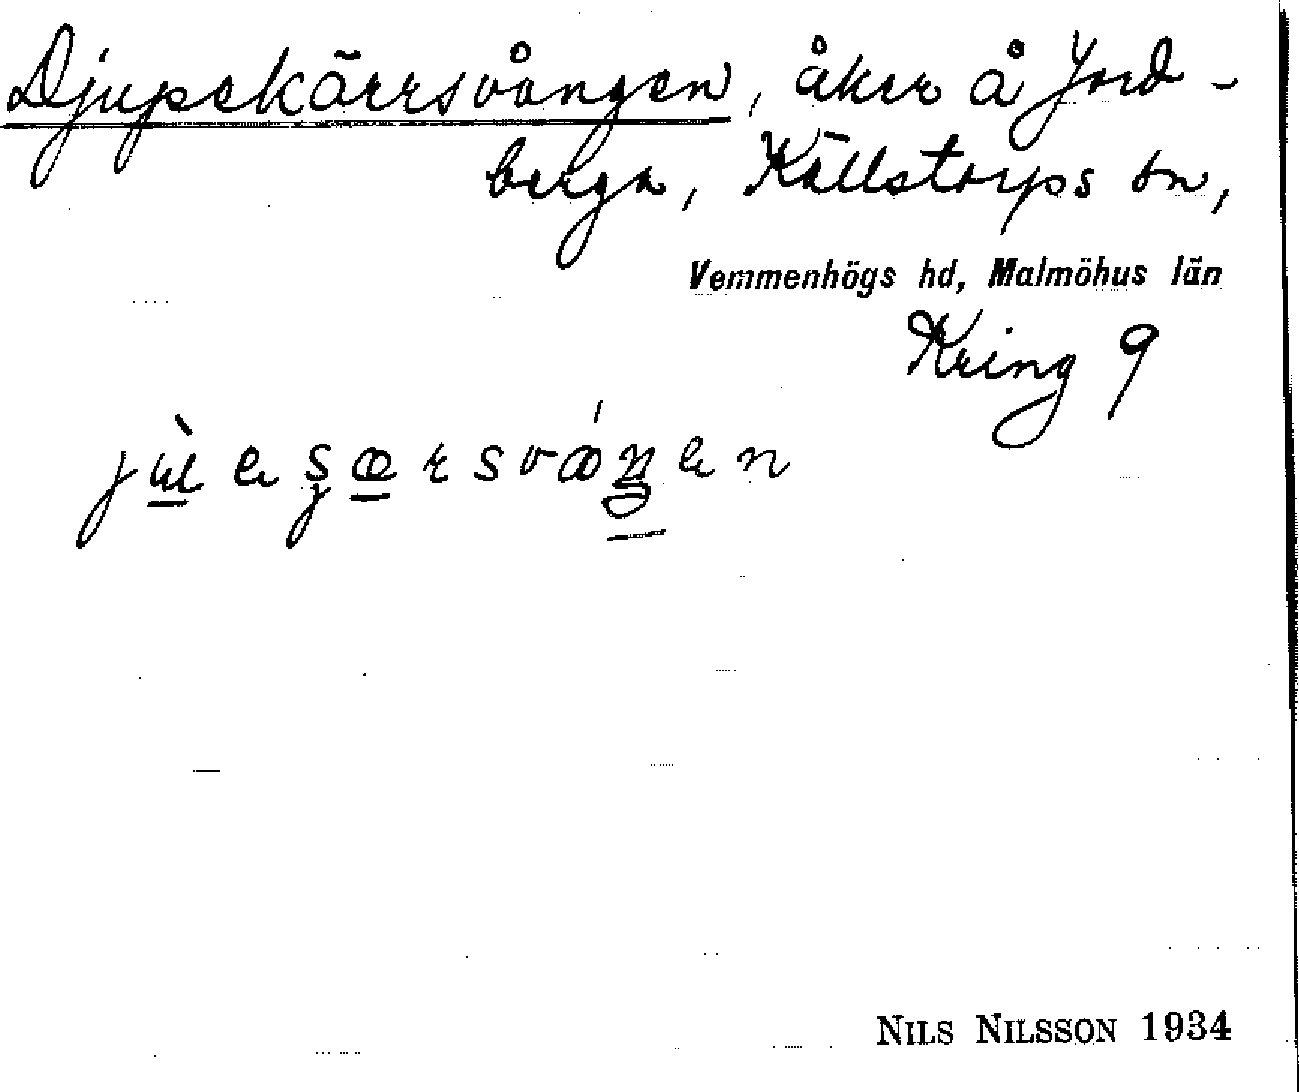 Djupekärrsvången, åker å Jord-
berga, Källstorps sn,
Vemmenhögs hd, Malmöhus län
Kring 9
NILS NILSSON 1934